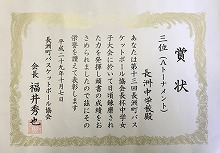 賞状
三位(Aトーナメント)
長洲中学校殿
あなたは第十三回長洲町バス
ケットボール協会長杯中学女
子大会に於いて日頃錬磨され
た力を発揮し頭書の成績をお
さめられましたので茲にその
栄誉を讃えて表彰します
平成二十九年十月七日
長洲町バスケットボール協会
会長 福井秀也